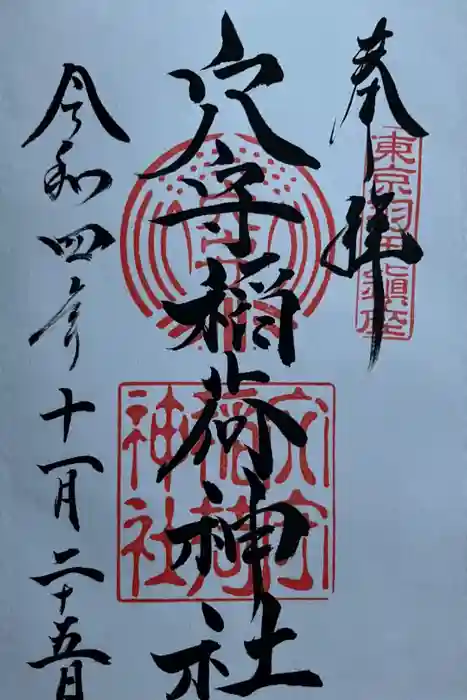 奉拝
東京羽田鎮座
穴守稲荷神社
穴守稲荷神社
令和四年十一月二十五日